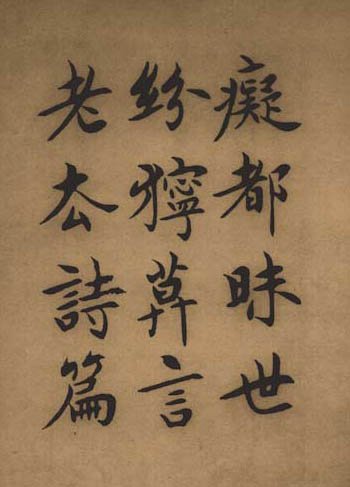 癡都昧世
紛獰言
老厺詩篇